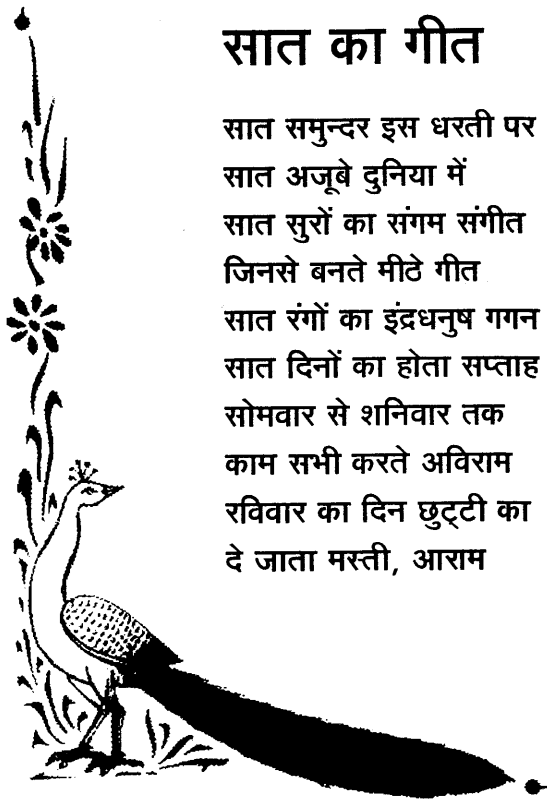 सात का गीत
सात समुन्दर इस धरती पर
सात अजूबे दुनिया में
सात सुरों का संगम संगीत
जिनसे बनते मीठे गीत
सात रंगों का इंद्रधनुष गगन
सात दिनों का होता सप्ताह
सोमवार से शनिवार तक
काम सभी करते अविराम
रविवार का दिन छुट्टी का
दे जाता मस्ती, आराम